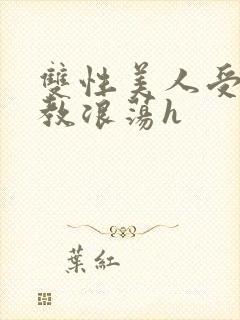 雙性美人受
教浪蕩h
葉紅